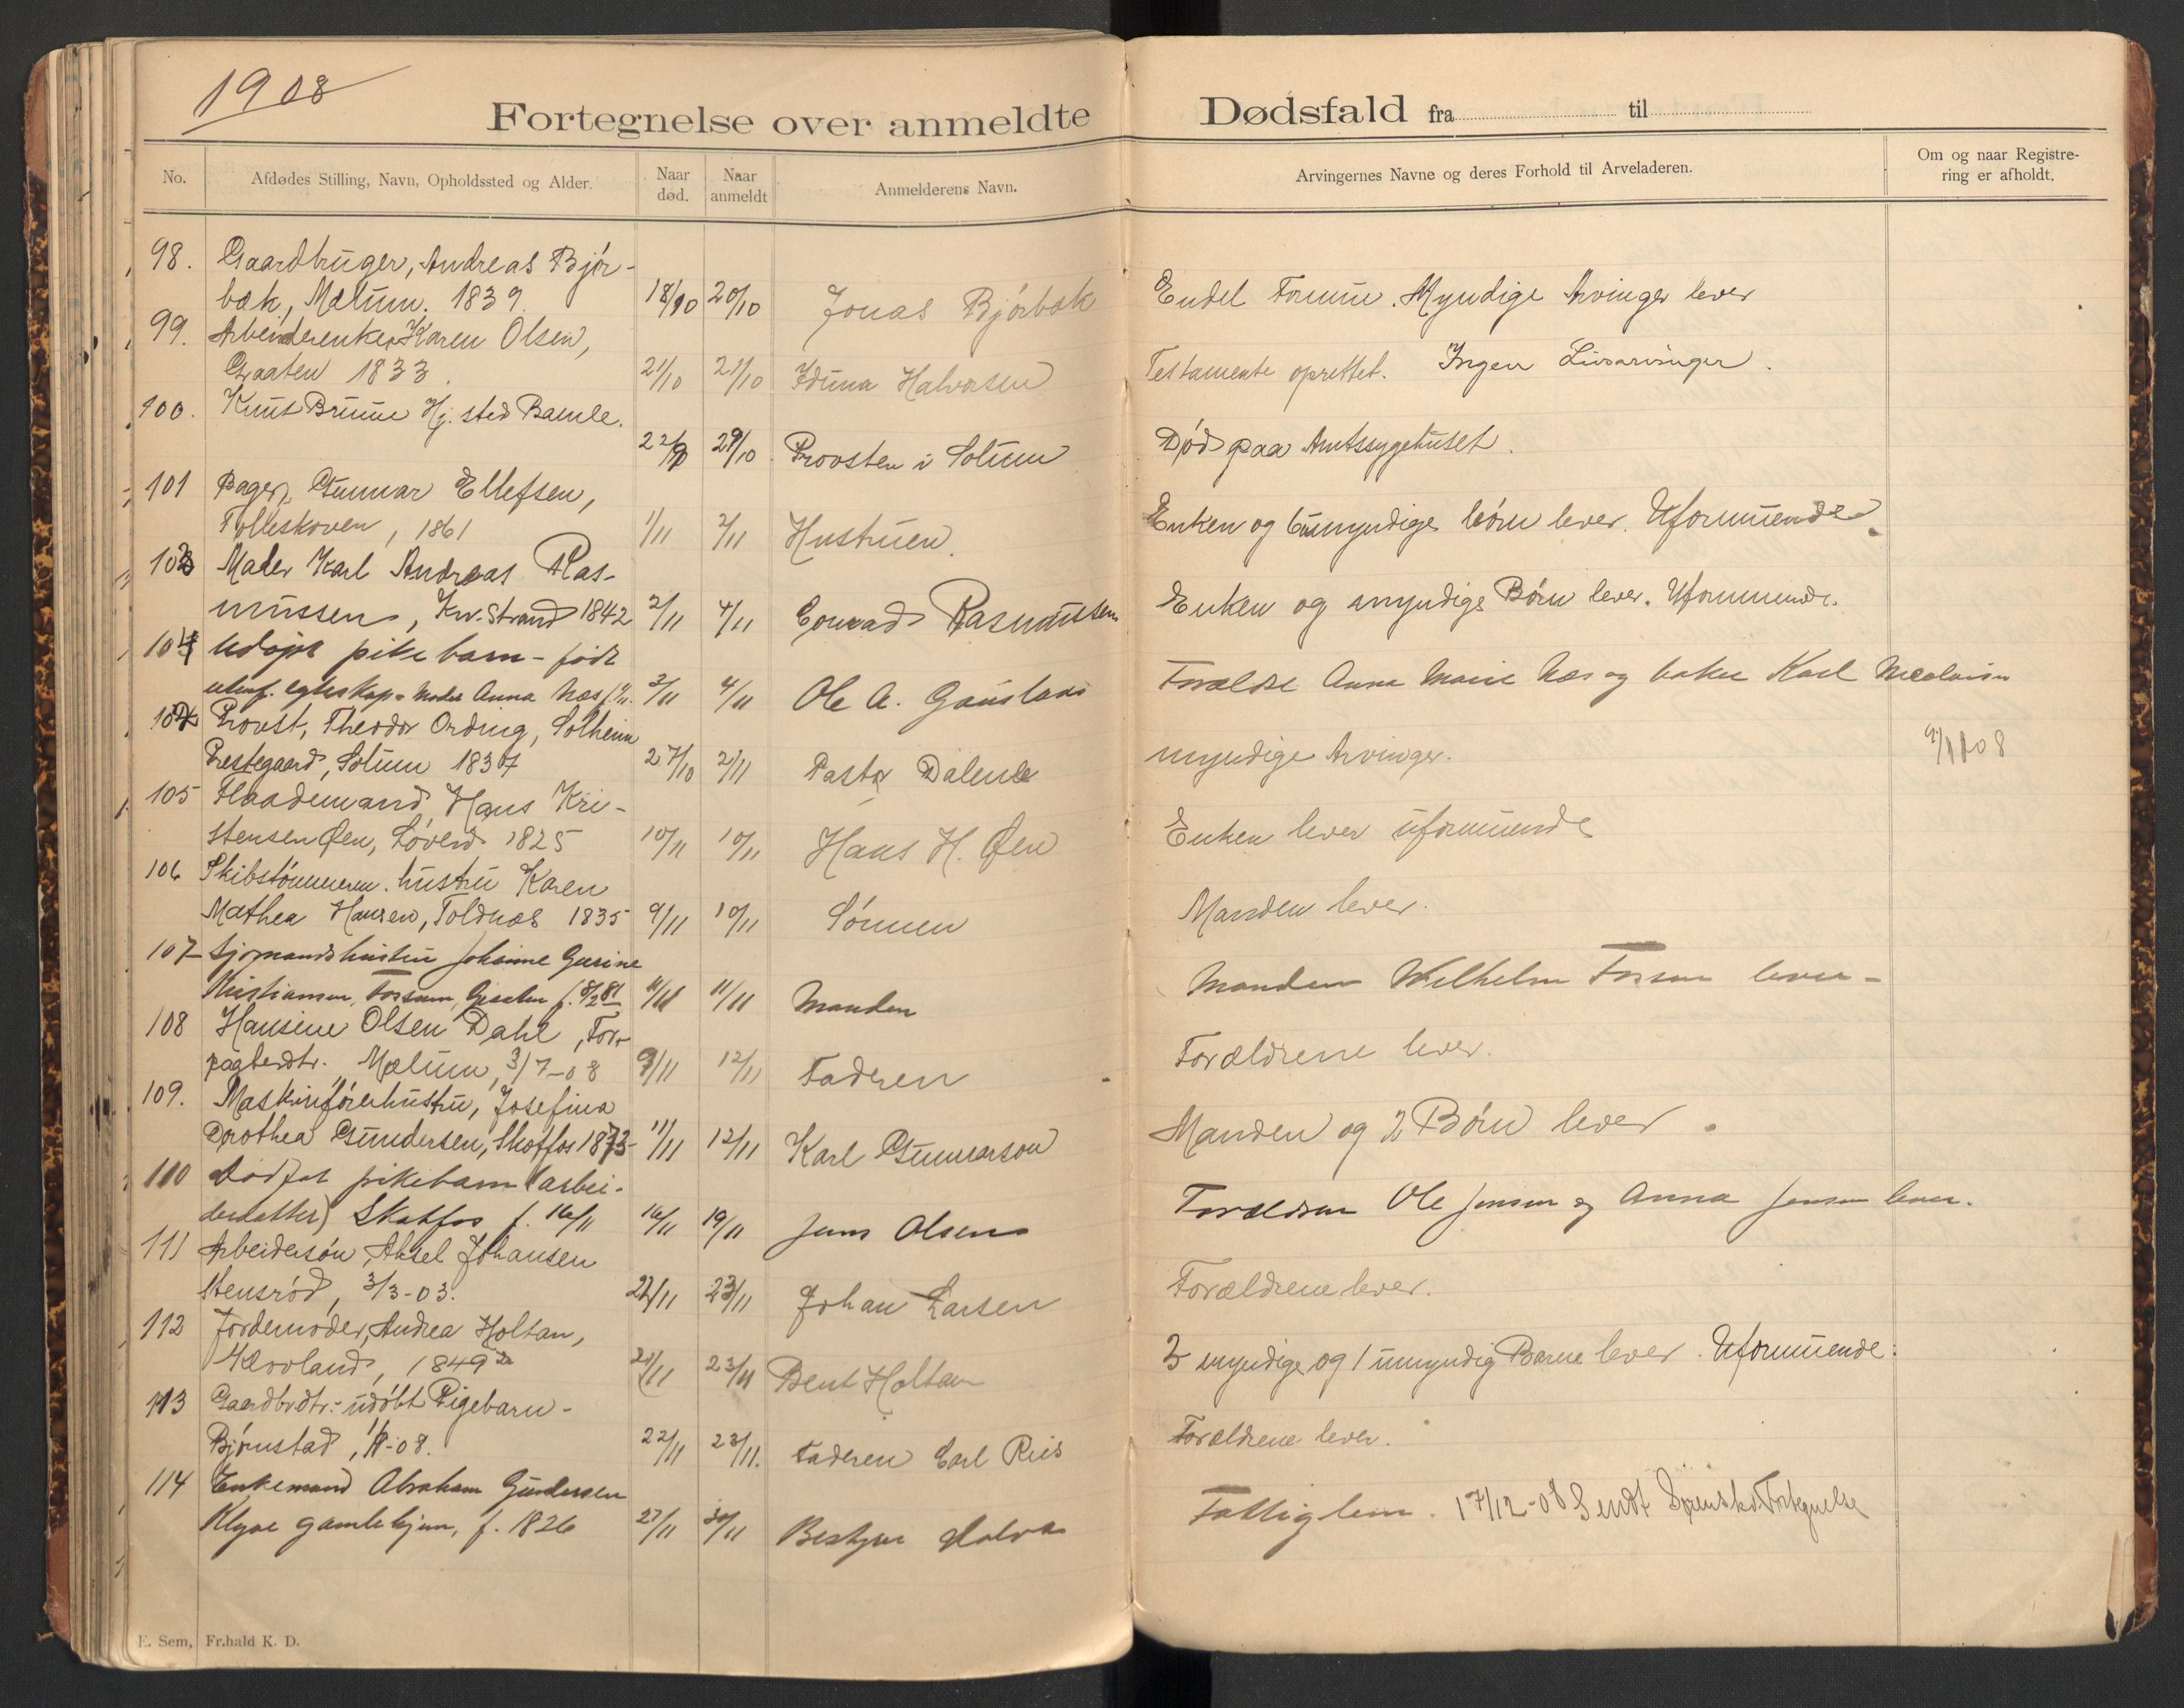 1908
Fortegnelse over anmeldte Dødsfald fra til
No. Afdødes Stilling, Navn, Opholdssted og Alder. Naar død. Naar anmeldt Anmelderens Navn. Arvingernes Navne og deres Forhold til Arveladeren. Om og naar Registrering er afholdt.
98. Gaardbruger, Andreas Bjør-
bæk, Mælum. 1839 18/10 20/10 Jonas Bjørbæk Endel Formue. Myndige Arvinger lever
99. Arbeiderenke Karen Olsen,
Graaten 1833. 21/10 21/10 Iduna Halvorsen Testamente oprettet. Ingen Livsarvinger.
100. Knut Brune Hj. sted Bamle.
22/9 29/10 Provsten i Solum Død paa Amtssygehuset.
101 Bager, Gunnar Ellefsen,
Tolleskoven, 1861 1/11 2/11 Hustruen. Enken og 6 umyndige børn lever. Uformuende.
102 Maler Karl Andreas Ras-
mussen, Kn. Strand 1842 2/11 4/11 Conrad Rasmussen Enken og myndige Børn lever. Uformuende.
103 Udøpt pikebarn - født
utenf. egteskap - Moder Anna Næs 3/11 4/11 Ole A. Gauslaa Forældre Anna Marie Næs og baker Karl
104 Provst, Theodor Ording, Solheim
Prestegaard, Solum 1837 27/10 2/11 Pastor Dalene myndige Arvinger. 9/11 08
105 Flaademand, Hans Kri-
stensen Øen, Løverd 1825 10/11 10/11 Hans H. Øen Enken lever uformuende
106 Skibstømmerm. hustru Karen
Mathea Hansen, Toldnæs 1835 9/11 10/11 Sønnen Manden lever.
107 Sjømandshustru Johanne Gurine
Kristiansen, Fossum, Graaten f. 8/2 81 11/11 11/11 Manden Manden Wilhelm Fossum lever -
108 Hansine Olsen Dahl, For-
pagterdtr. Mælum, 3/7-08 9/11 12/11 Faderen Forældrene lever.
109. Maskinførerhustru, Josefina
Dorothea Gundersen, Skotfos 1873 11/11 12/11 Karl Gunnarson Manden og 2 Børn lever.
110 Dødfødt pikebarn (arbei-
derdatter) Skotfos f. 16/11 16/11 19/11 Jens Olsen Forældrene Ole Jensen og Anna Jensen lever.
111 Arbeidersøn, Aksel Johansen
Stensrød, 3/3-03. 22/11 23/11 Johan Larsen Forældrene lever.
112 Jordemoder, Andrea Holtan,
Kloland, 1849 21/11 23/11 Bent Holtan 3 myndige og 1 umyndig Barne lever. Uformuende.
113 Gaardbrdtr. - udøbt Pigebarn -
Bjørnstad, 11-08. 22/11 23/11. Faderen Carl Riis Forældrene lever.
114 Enkemand Abraham Gundersen
Klyve gamlehjem, f. 1826 27/11 30/11 Bestyrer Fattiglem. 17/12-08 Sendt Fortegnelse
E. Sem, Fr.hald K. D.